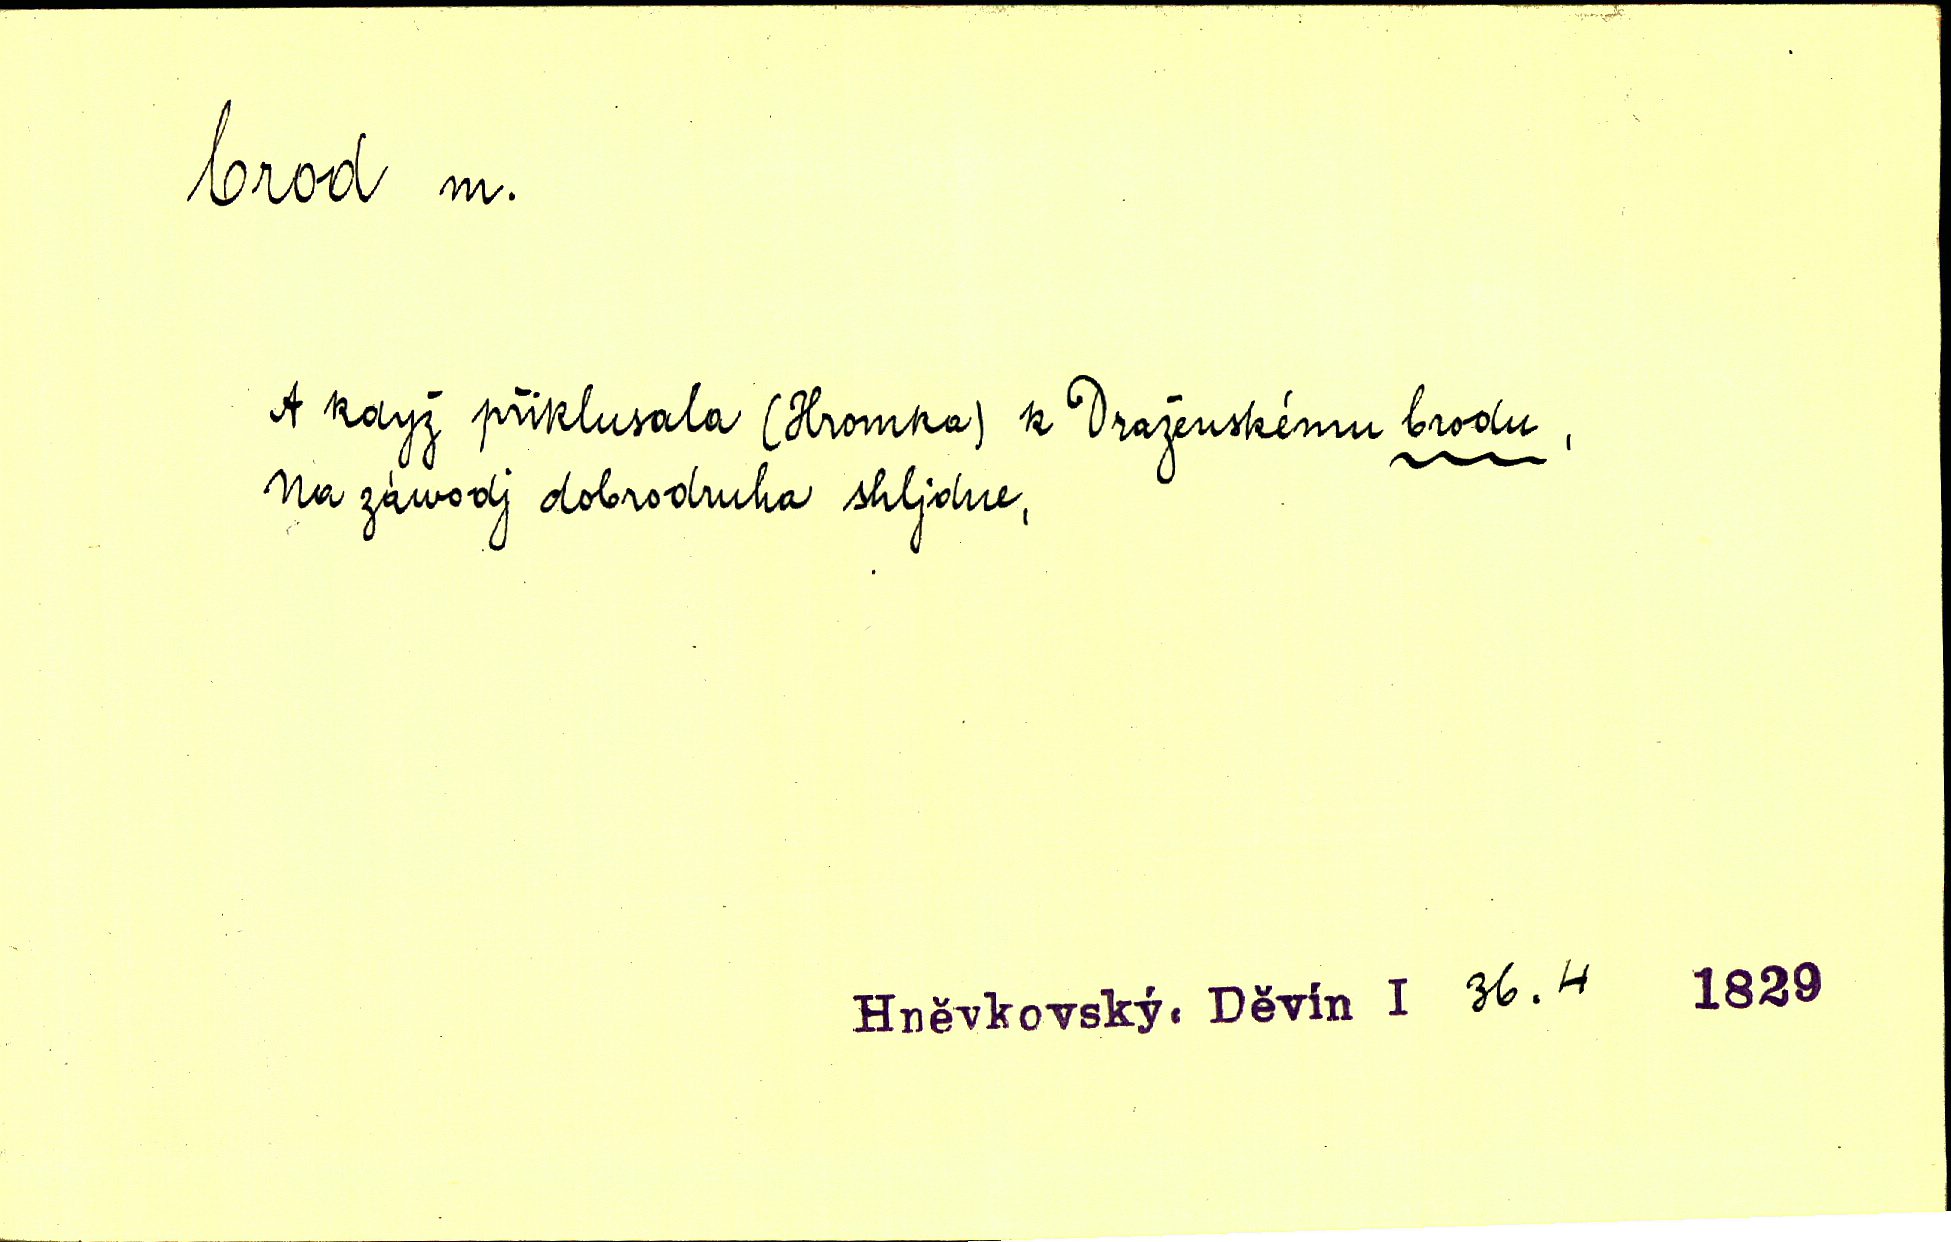 brod m.
A když přiklusala (Hromka) k Draženskému brodu,
Na záwodj dobrodruha shljdne,
Hněvkovský. Děvín I 36.4 1829